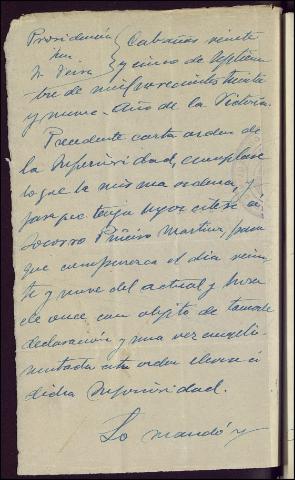 Providencia Cabañas veinte
Juez y cinco de Septiem
Sr. Veira
bre de mil novecientos treinta
y nueve. Año de la Victoria.
Precedente carta orden de
la Superioridad, cumplase
lo que la misma ordena, y
para que tenga lugar citese a
Socorro Piñeiro Martinez, para
que comparezca el dia vein
te y nueve del actual y hora
de once con objeto de tomarle
declaración y una vez cumpli
mentada esta orden elevese a
dicha Superioridad.
Lo mandó y